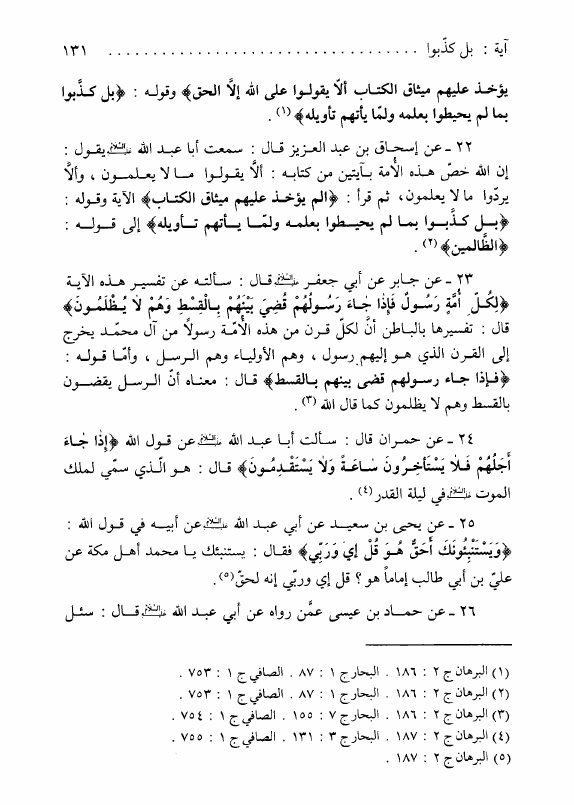 آية : بل كذّبوا . . . . . . . . . . . . . . . . . . . . . . . . . . . . . . . . . . ١٣١
يؤخـذ عليهم ميثاق الكتـاب ألاّ يقولـوا على الله إلاَّ الحق﴾ وقوله : ﴿بل كذَّبوا
بما لم يحيطوا بعلمه ولمّا يأتهم تأويله﴾ (١) .
٢٢ ـ عن إسحاق بن عبد العزيز قـال : سمعت أبا عبـد الله عليه السلام يقول :
إن الله خصّ هـذه الأُمة بـآيتين من كتابـه : ألاَّ يقولـوا مـا لا يعلمـون ، وألاَّ
يردّوا ما لا يعلمون، ثم قرأ : ﴿الم يؤخـذ عليهم ميثاق الكتاب﴾ الآية وقوله :
﴿بـل كـذَّبـوا بمـا لم يحيـطوا بعلمـه ولمّـا يـأتهم تـأويله﴾ إلى قـولـه :
﴿الظَّالمين﴾ (٢) .
٢٣ ـ عن جابر عن أبي جعفر عليه السلام قال : سـألته عن تفسيـر هـذه الآيـة
﴿لِكُلِّ أُمَّةٍ رَسُولٌ فَإِذَا جَـاءَ رَسُولُهُمْ قُضِيَ بَيْنَهُمْ بِـالْقِسْطِ وَهُمْ لاَ يُـظْلَمُـونَ﴾
قال : تفسيرها بالباطن أنَّ لكلّ قرن من هذه الأمّـة رسولاً من آل محمّـد يخرج
إلى القرن الذي هـو إليهم رسول ، وهم الأولياء وهم الرسـل ، وأمّـا قولـه :
﴿فـإذا جـاء رسـولهم قضى بينهم بـالقسط﴾ قال : معنـاه أنّ الـرسـل يقضـون
بالقسط وهم لا يظلمون كما قال الله (٣) .
٢٤ ـ عن حمران قال : سـألت أبـا عبـد الله عليه السلام عن قول الله ﴿إِذَا جَـاءَ
أَجَلُهُمْ فَـلاَ يَسْتَأْخِـرُونَ سَـاعَـةً وَلاَ يَسْتَقْـدِمُـونَ﴾ قال : هـو الّـذي سمّي لملك
الموت عليه السلام في ليلة القدر (٤) .
٢٥ ـ عن يحيى بن سعيـد عن أبي عبـد الله عليه السلام عن أبيـه في قول الله :
﴿وَيَسْتَنْبِئُونَكَ أَحَقٌّ هُـوَ قُلْ إِي وَرَبِّي﴾ فقـال : يستنبئك يـا محمد أهـل مكة عن
عليّ بن أبي طالب إماماً هو ؟ قل إي وربّي إنه لحقّ (٥) .
٢٦ ـ عن حمـاد بن عيسى عمَّن رواه عن أبي عبـد الله عليه السلام قـال : سئـل
(١) البرهان ج ٢ : ١٨٦ . البحار ج ١ : ٨٧ . الصافي ج ١ : ٧٥٣ .
(٢) البرهان ج ٢ : ١٨٦ . البحار ج ١ : ٨٧ . الصافي ج ١ : ٧٥٣ .
(٣) البرهان ج ٢ : ١٨٦ . البحار ج ٧ : ١٥٥ . الصافي ج ١ : ٧٥٤ .
(٤) البرهان ج ٢ : ١٨٧ . البحار ج ٣ : ١٣١ . الصافي ج ١ : ٧٥٥ .
(٥) البرهان ج ٢ : ١٨٧ .